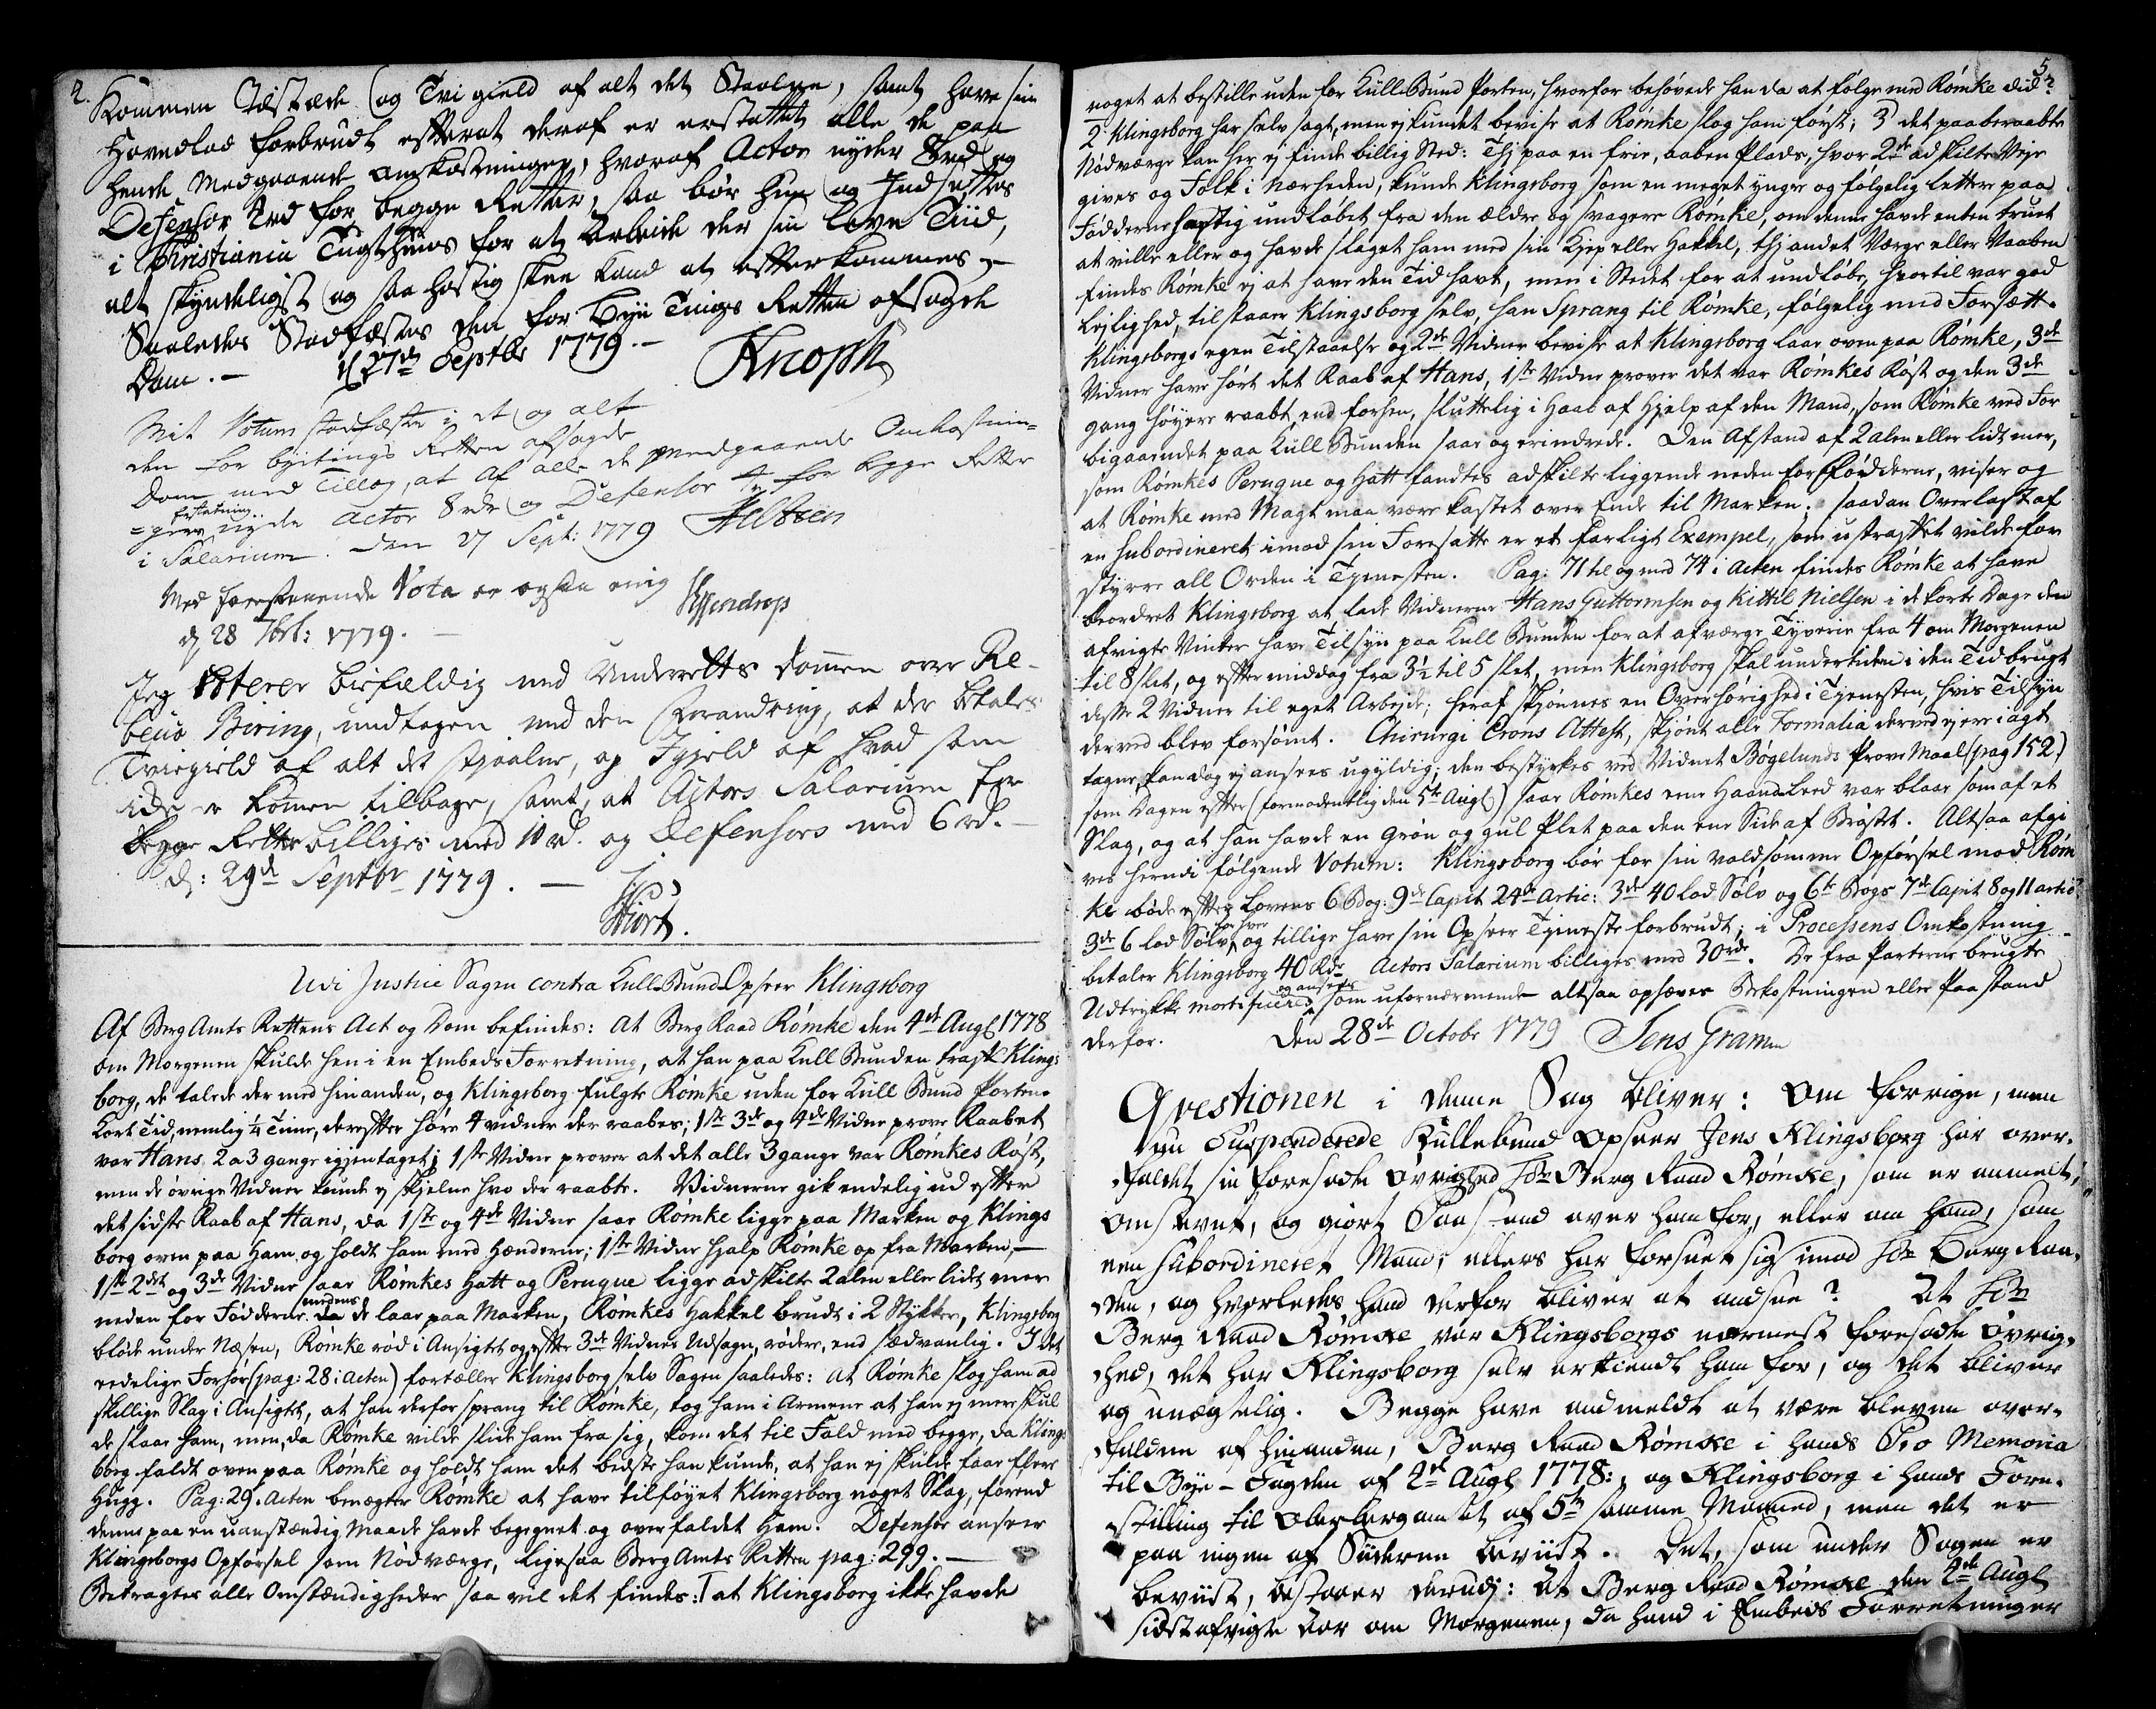 4.
Kommen Tilstæde og Tvi gield af alt det Staalne, samt have sin
Hovedlod forbrudt efterat deraf er erstattet alle de paa
hende Medgaaende omkostninger, hvoraf Actor nyder 8rd og
Defensor 4rd for begge Retter, saa bør hun og Indsættes
i Christiania Tugthuus for at Arbeide der sin Livs Tiid,
alt skyndeligst og saa hastig skee kand at efterkommes,
Saaledes Stadfæstes den for Bye Tings Retten afsagde
Dom. – d 27de Septbr 1779. – Knoph
Mit Votum stadfæster i et og alt
den for byetings Retten afsagde
Dom med Tillæg, at af alle de medgaaende Omkostnin=
=gers erstatning nyde Actor 8 rdr og Defensor 4 for begge Retter
i Salarium. Den 27 Sept: 1779
Med forestaaende Vota er ogsaa enig
d 28 7brs: 1779.
Jeg voterer biefældig med Underretts Dommen over Re-
beus Biring, undtagen med den Forandring, at der betales
Tviegield af alt det stjaalne, og Igjeld af hvad som
ikke er kommen tilbage, samt, at Actors Salarium for
begge Retter billiges med 10 rd. og Defensors med 6 rd. –
d: 29de Septbr 1779. – Hiort.
Udi Justice Sagen contra Kull-Bund-Opseer Klingsborg
Af Berg Amts Rettens Act og Dom befindes: at Berg Raad Römke den 4de Augs 1778
om Morgenen skulde hen i en Embeds Forretning, at han paa Kull Bunden traf Klings
borg, de talede der med hinanden, og Klingsborg fulgte Römke uden for Kull Bund Porten.
Kort Tid, nemlig ¼ Time, derefter höre 4 vidner der raabes; 1ste 3de og 4de Vidne prove Raabet
var Hans 2 a 3 gange igjentaget; 1ste Vidne prover at det alle 3 gange var Römkes Röst,
men de övrige Vidner kunde ej skjelne hvo der raabte. Vidnerne gik endelig ud efter
det sidste Raab af Hans, da 1ste og 4de Vidne saae Römke ligge paa Marken og Klings
borg oven paa Ham og holdt ham med Hænderne; 1ste Vidne hjalp Römke op fra Marken, –
1ste 2det og 3de Vidne saae Römkes Hatt og Perugue ligge adskilte 2 alen eller lidet mere
neden for Födderne medens de laae paa Marken, Römkes Hakkel brudt i 2 Stykker, Klingsborg
blöde under Næsen, Römke röd i Ansigtet og, efter 3de Vidnes Udsagn, rödere, end sædvanlig. I det
eedelige Forhör (pag: 28 i acten) fortæller Klingsborg selv Sagen saaledes: at Römke slog ham ad
skillige Slag i Ansigtet, at han derfor sprang til Römke, tog ham i Armene at han ej mere skul
de slaae ham, men, da Römke vilde slide ham fra sig, kom det til Fald med begge, da Klings
borg faldt oven paa Römke og holdt ham det bedste han kunde, at han ej skulde faae flere
Hugg. Pag: 29. Acten benægter Römke at have tilföyet Klingsborg noget Slag, förend
denne paa en uanstændig Maade havde begegnet og overfaldet Ham. Defensor ansees
Klingsborgs Opförsel som Nödværge, ligesaa Berg Amts Retten pag: 299. –
Betragtes alle Omstændigheder saa vil det findes: 1 at Klingsborg ikke havde
5
noget at bestille uden for Kull-Bund Porten, hvorfor behövede han da at fölge med Römke did?
2. Klingsborg har selv sagt, men ej kundet bevise at Römke slog ham först; 3 det paaberaabte
Nödværge kan her ej finde billig Sted: Thj paa en frie, aaben Plads, hvor 2de adskilte Veje
gives og Folk i nærheden, kunde Klingsborg som en meget ynger og fölgelig letter paa
Födderne hastig undlöbet fra den ældre og svagere Römke, om denne havde enten truet
at ville eller og havde slaget ham med sin Kjep eller Hakkel, thj andet Værge eller Vaaben
findes Römke ej at have den Tid havt, men i Stedet for at undlöbe, hvortil var god
Lejlighed, tilstaaer Klingsborg selv, han Sprang til Römke, fölgelig med Forsætt.
Klingsborgs egen Tilstaaelse og 2de Vidner bevise at Klingsborg laae oven paa Römke, 3de
Vidner have hört det Raab af Hans, 1ste Vidne prover det var Römkes Röst og den 3de
gang höyere raabt, end forhen, sluttelig i Haab af Hjelp af den Mand, som Römke ved For
bigaaendet paa Kull Bunden saae og erindrede. Den Afstand af 2 alen eller lidt mer,
som Römkes Perugue og Hatt fandtes adskilte liggende neden for Födderne, viser og
at Römke med Magt maa være kastet over Ende til Marken. saadan Overlast af
en subordineret imod sin Foresatte er et farligt Exempel, som ustraffet vilde for
styrre all Orden i Tjenesten. Pag: 71 til og med 74 i Acten findes Römke at have
beordret Klingsborg at lade Vidnerne Hans Guttormsen og Kittil Nielsen i de korte Dage den
afvigte Vinter have Tilsyn paa Kull Bunden for at afværge Tyverie fra 4 om Morgenen
til 8 slet, og eftermiddag fra 3½ til 5 slet, men Klingsborg skal undertiden i den Tid brugt
disse 2 Vidner til eget Arbejde; heraf skjönnes en Overhörighed i Tjenesten, hvis Tilsyn
derved blev forsömt. Chirurgi Crons Attest, skjönt alle Formalia derved ej ere i agt
tagne, kan dog ej ansees ugyldig; den bestyrkes ved Vidnet Bögelunds Prove Maal (pag 152)
som Dagen efter (formodentlig den 5te Augs) saae Römkes ene Haand-Leed var blaae som af et
Slag, og at han havde en grön og gul Plet paa den ene Side af Bröstet. Altsaa afgi
ves herudi fölgende Votum: Klingsborg bör for sin voldsomme Opförsel mod Röm
ke böde efter Lovens 6 Bog: 9de Capit 24de Artic: 3de 40 Lod Sölv og 6te Bogs 7de Capit 8 og 11 artic?
3de 6 Lod Sölv for hver og tillige have sin Opseer Tjeneste forbrudt; i Processens Omkostning
betaler Klingsborg 40 Rdr. Actors Salarium billiges med 30 rdr. De fra Parterne brugte
Udtrykke mortificeres og ansees som ufornærmende altsaa ophæves Bekostningen eller Paastand
derfor. Den 28de Octobr 1779 Jens Gramm
Qvestionen i denne Sag bliver: Om forrige, men
nu Suspenderede Kullebund Opseer Jens Klingsborg har over-
faldet sin foresadte Øvrighed Hr Berg Raad Römke, som er anmeldt,
omskevet, og giort Paastand over ham for, eller om hand, som
een Subordineret Mand, ellers har forseet sig imod Hr Berg Raa-
den, og hvorledes hand derfor bliver at andsee? At Hr
Berg Raad Römke var Klingsborgs nærmest foresadte Øvrig-
hed, det har Klingsborg selv erkiendt ham for, og det bliver
og unægtelig. Begge have andmeldt at være bleven over-
falden af hinanden, Berg Raad Römke i hands Pro Memoria
til Bye-Fogden af 4de Augs 1778:, og Klingsborg i hands Fore-
stilling til Oberbergamtet af 5te samme Maaned, men det er
paa ingen af Siiderne beviist. Det, som under Sagen er
beviist, bestaaer derudj: At Berg Raad Römke den 4de Augs
sidstafvigte Aar om Morgenen, da hand i Embeds Forretninger